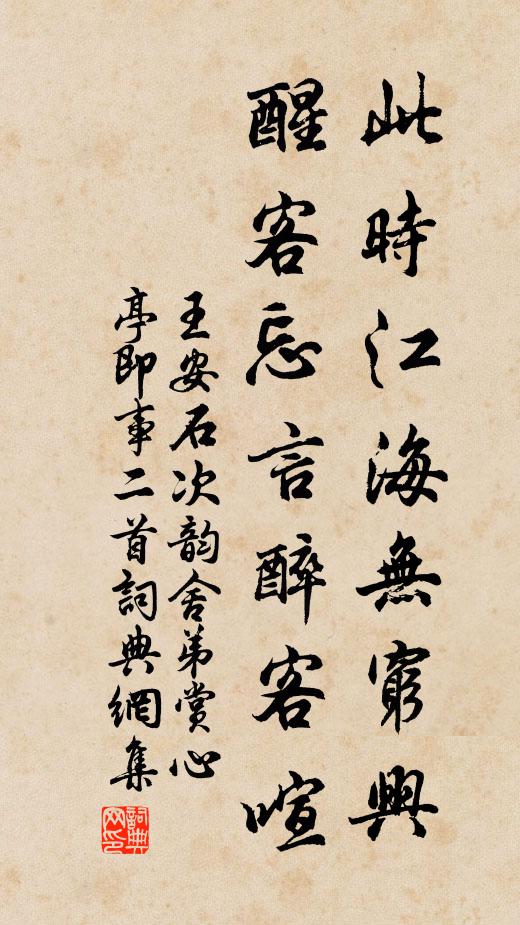 此時江海無窮興
醒客忘言醉客喧
王安石次韵舍弟賞心
亭即事二首詞典網集
詞典网印